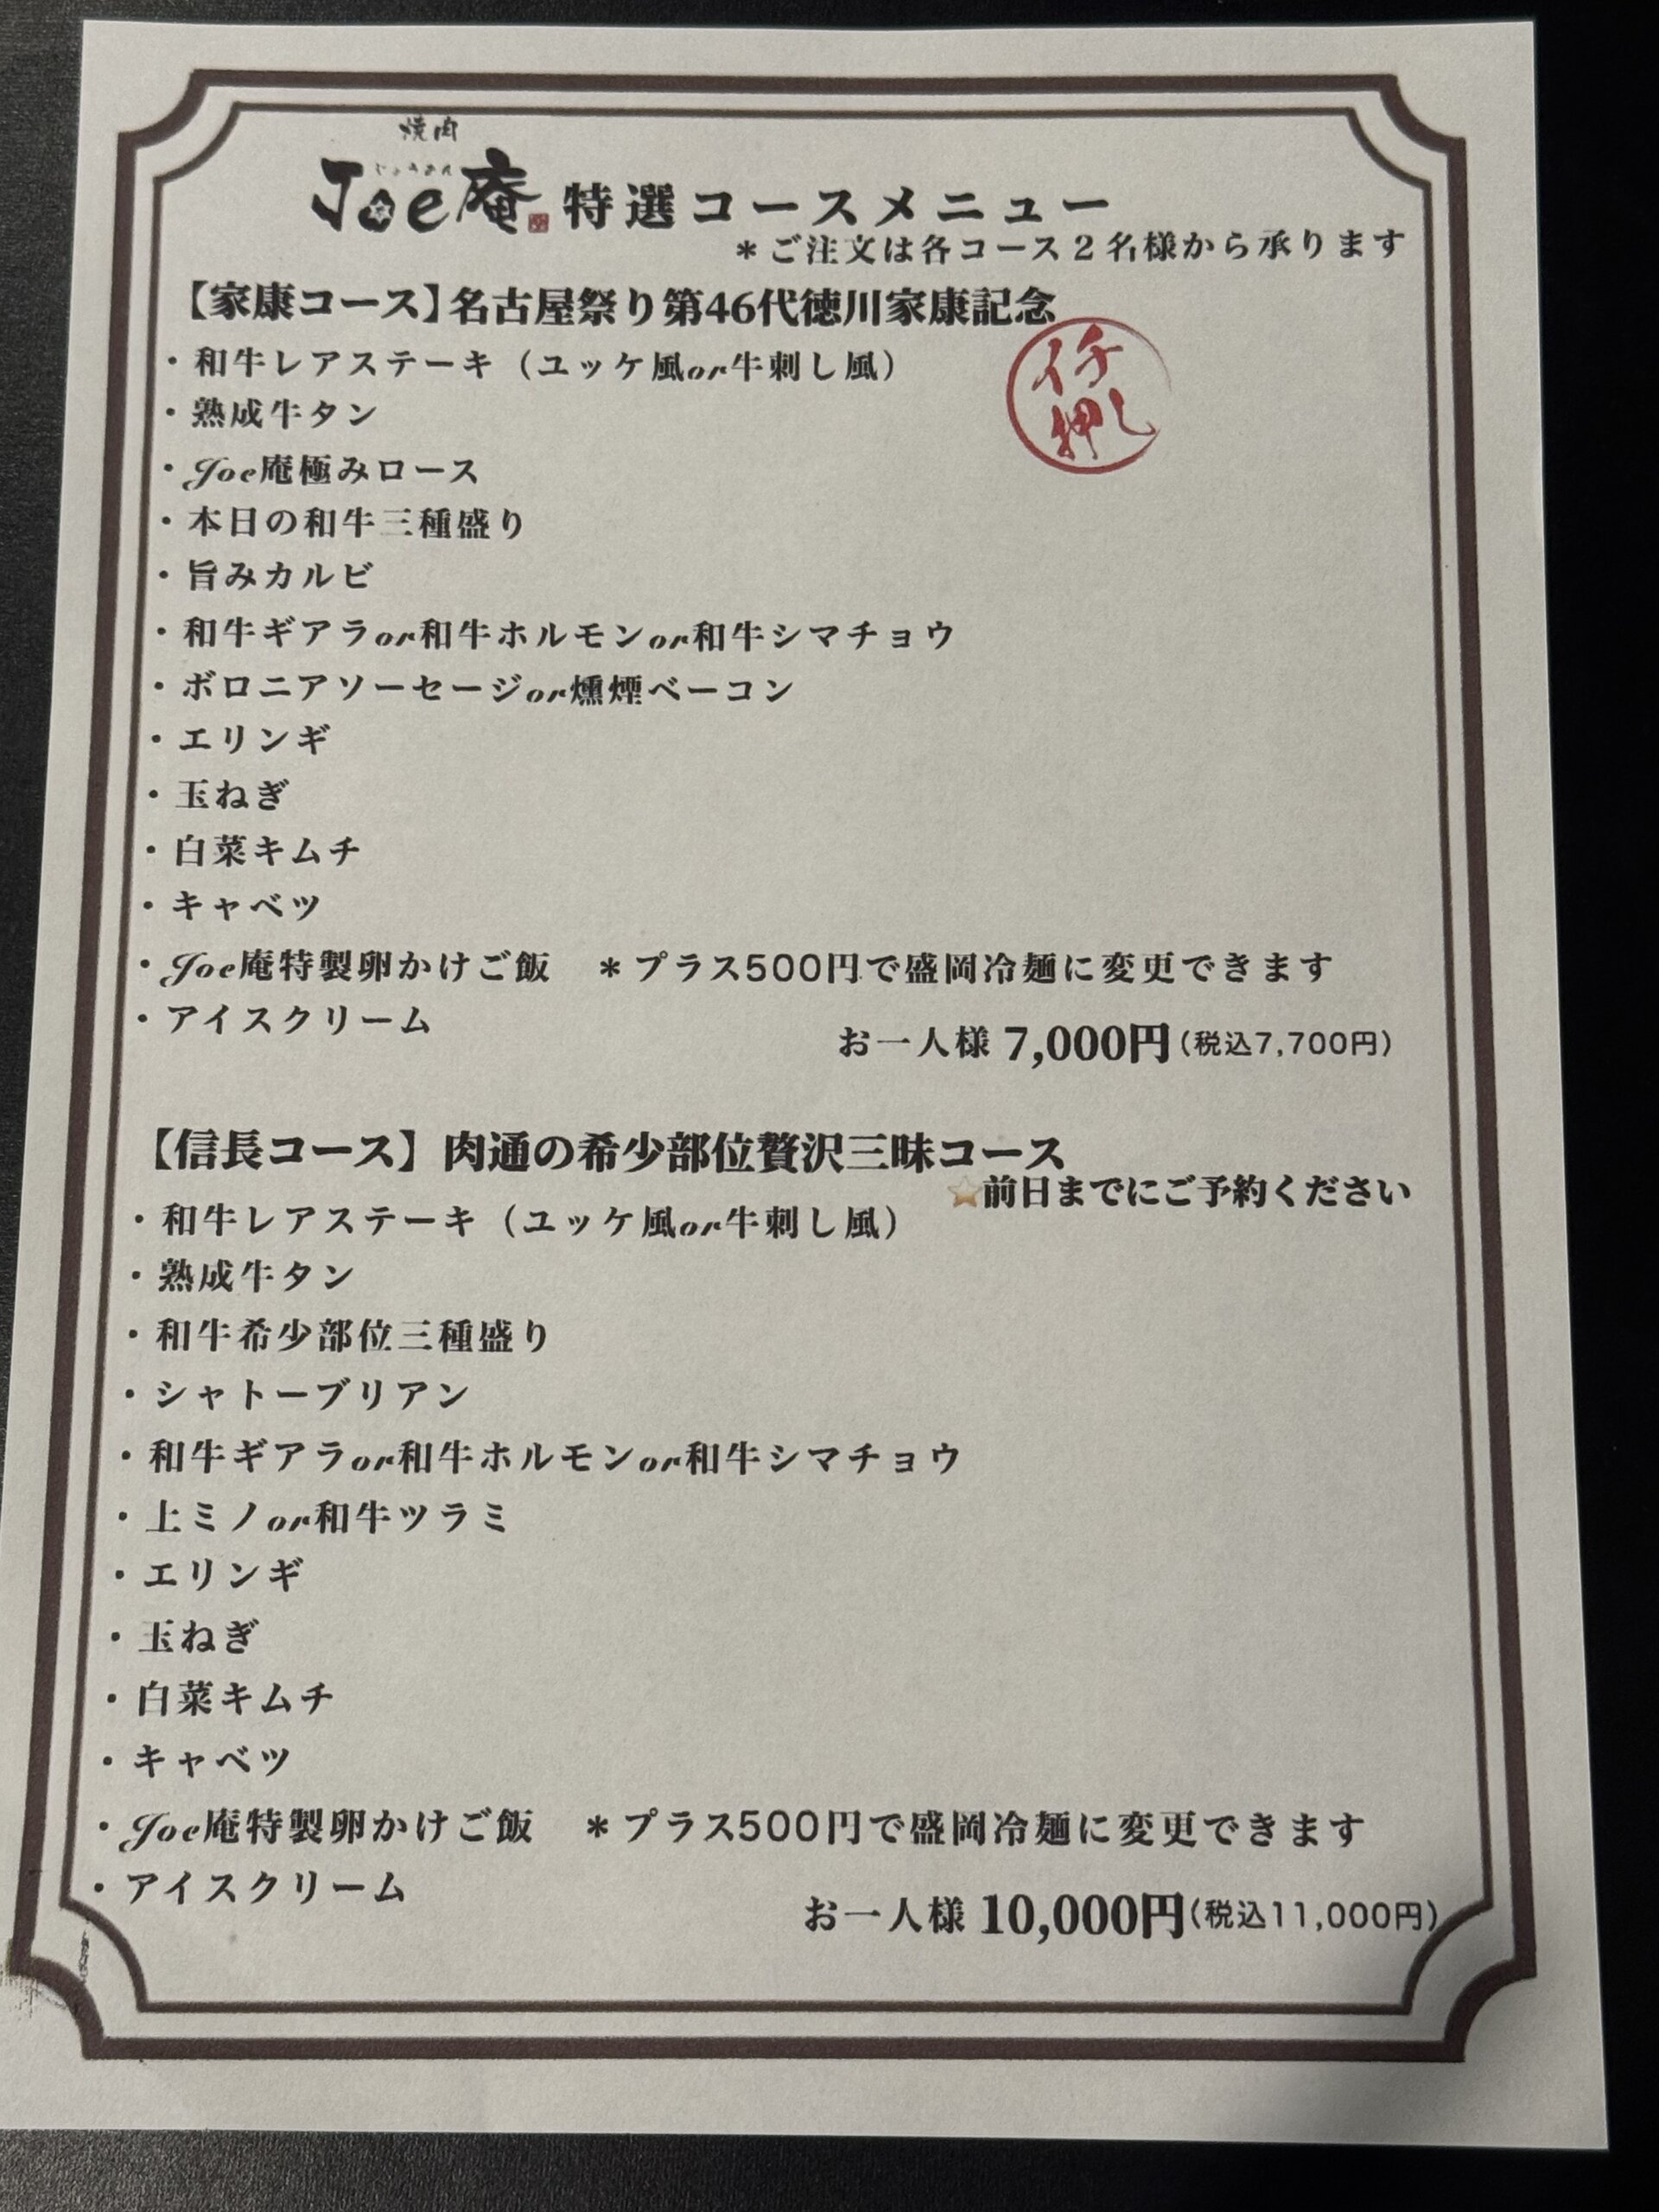 焼肉
じょうあん
Joe庵 特選コースメニュー
＊ご注文は各コース２名様から承ります
【家康コース】名古屋祭り第46代徳川家康記念
イチ
押し
・和牛レアステーキ（ユッケ風or牛刺し風）
・熟成牛タン
・Joe庵極みロース
・本日の和牛三種盛り
・旨みカルビ
・和牛ギアラor和牛ホルモンor和牛シマチョウ
・ボロニアソーセージor燻煙ベーコン
・エリンギ
・玉ねぎ
・白菜キムチ
・キャベツ
・Joe庵特製卵かけご飯　＊プラス500円で盛岡冷麺に変更できます
・アイスクリーム
お一人様 7,000円(税込7,700円)
【信長コース】肉通の希少部位贅沢三昧コース
⭐前日までにご予約ください
・和牛レアステーキ（ユッケ風or牛刺し風）
・熟成牛タン
・和牛希少部位三種盛り
・シャトーブリアン
・和牛ギアラor和牛ホルモンor和牛シマチョウ
・上ミノor和牛ツラミ
・エリンギ
・玉ねぎ
・白菜キムチ
・キャベツ
・Joe庵特製卵かけご飯　＊プラス500円で盛岡冷麺に変更できます
・アイスクリーム
お一人様 10,000円(税込11,000円)